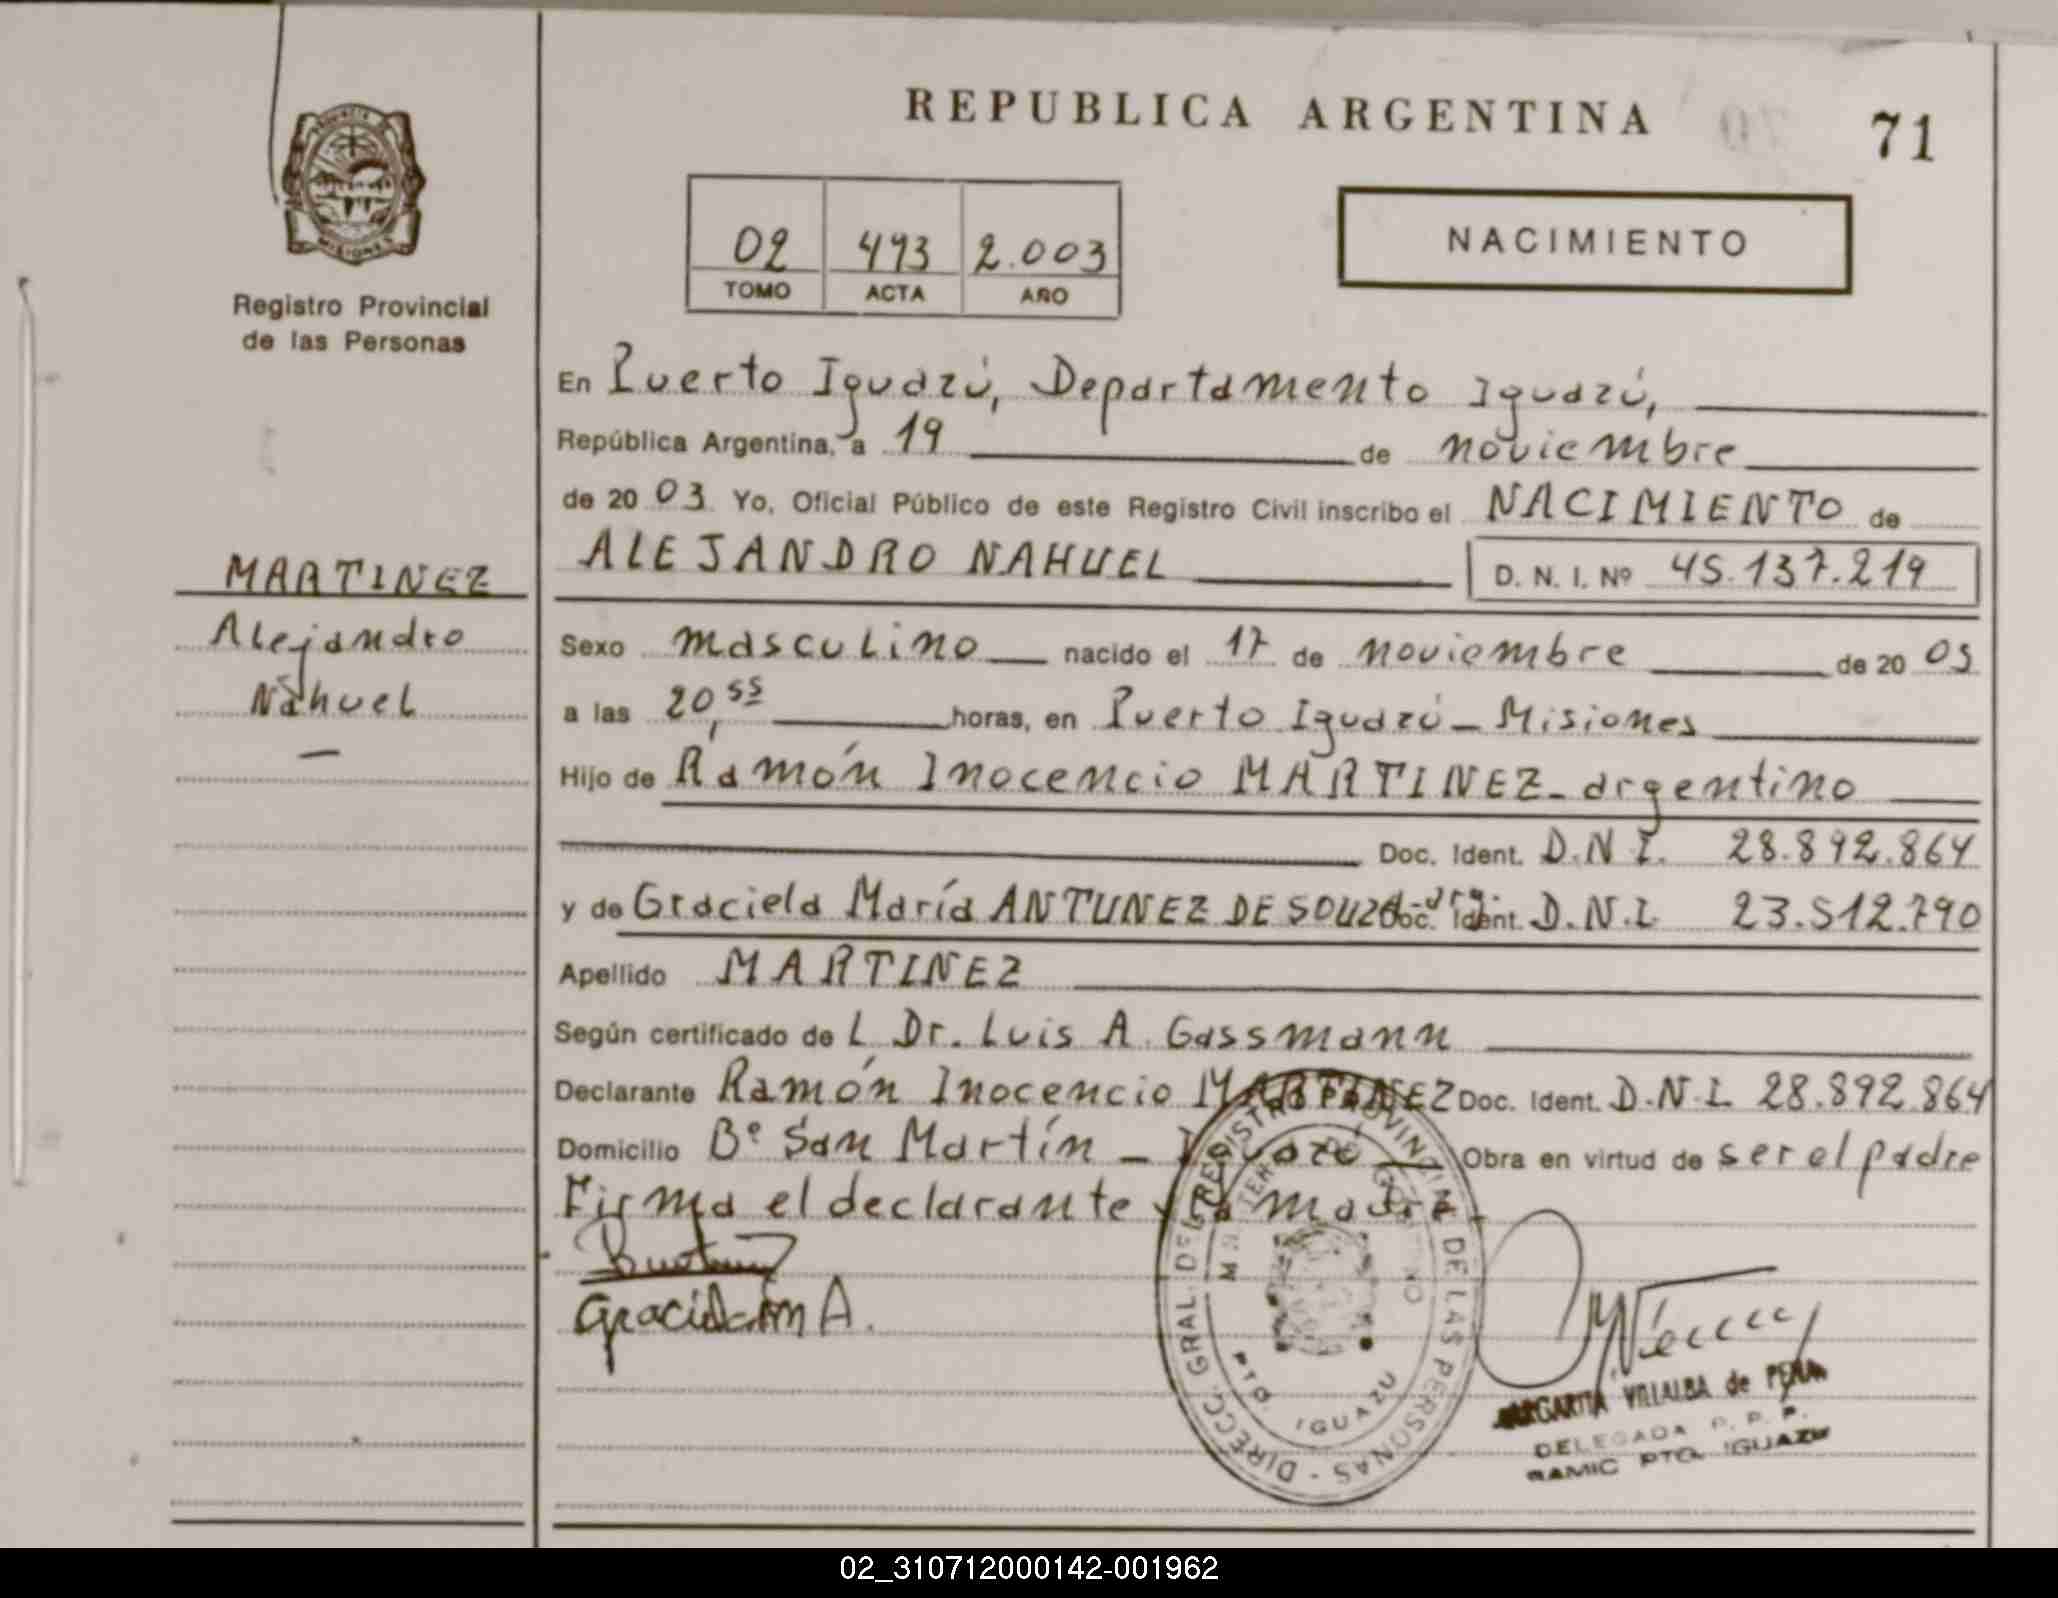 REPUBLICA ARGENTINA
71
PROVINCIA DE
MISIONES
Registro Provincial
de las Personas
02 493 2.003
TOMO ACTA AÑO
NACIMIENTO
En Puerto Iguazú, Departamento Iguazú,
República Argentina, a 19 de noviembre
de 20 03 Yo, Oficial Público de este Registro Civil inscribo el NACIMIENTO de
ALEJANDRO NAHUEL D. N. I. Nº 45.137.219
MARTINEZ
Alejandro
Nahuel
Sexo masculino nacido el 17 de noviembre de 20 03
a las 20,55 horas, en Puerto Iguazú - Misiones
Hijo de Ramón Inocencio MARTINEZ - argentino
Doc. Ident. D.N.I. 28.892.864
y de Graciela María ANTUNEZ DE SOUZA - arg. Doc. Ident. D.N.I. 23.512.790
Apellido MARTINEZ
Según certificado de L Dr. Luis A. Gassmann
Declarante Ramón Inocencio MARTINEZ Doc. Ident. D.N.I. 28.892.864
Domicilio Bº San Martín - Iguazú Obra en virtud de ser el padre
Firma el declarante y la madre
DIRECC. GRAL. DEL REGISTRO PROVINZIAL DE LAS PERSONAS
PTO. IGUAZU
MARGARITA VILLALBA de PEÑA
DELEGADA R. P. P.
RAMIC PTO. IGUAZU
02_310712000142-001962